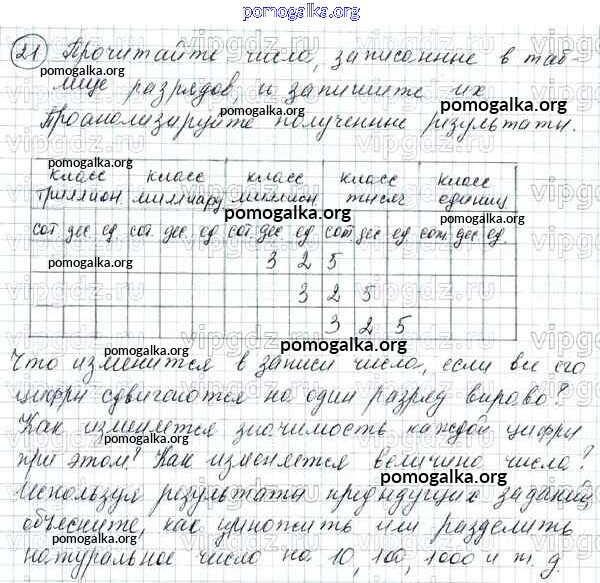 pomogalka.org
21 Прочитайте числа, записанные в таб-
pomogalka.org
лице разрядов, и запишите их
pomogalka.org
Проанализируйте полученные результаты.
pomogalka.org
класс класс класс класс класс
триллион миллиард миллион тысяч единиц
pomogalka.org
сот дес ед. сот. дес. ед сот дес ед сот дес ед сот. дес ед.
pomogalka.org 3 2 5
3 2 5
3 2 5
pomogalka.org
Что изменится в записи числа, если все его
pomogalka.org
цифры сдвигаются на один разряд вправо?
Как изменяется значимость каждой цифры
pomogalka.org
при этом? Как изменяется величина числа?
pomogalka.org
Используя результаты предыдущих заданий,
объясните, как умножить или разделить
pomogalka.org
натуральное число на 10, 100, 1000 и т. д.